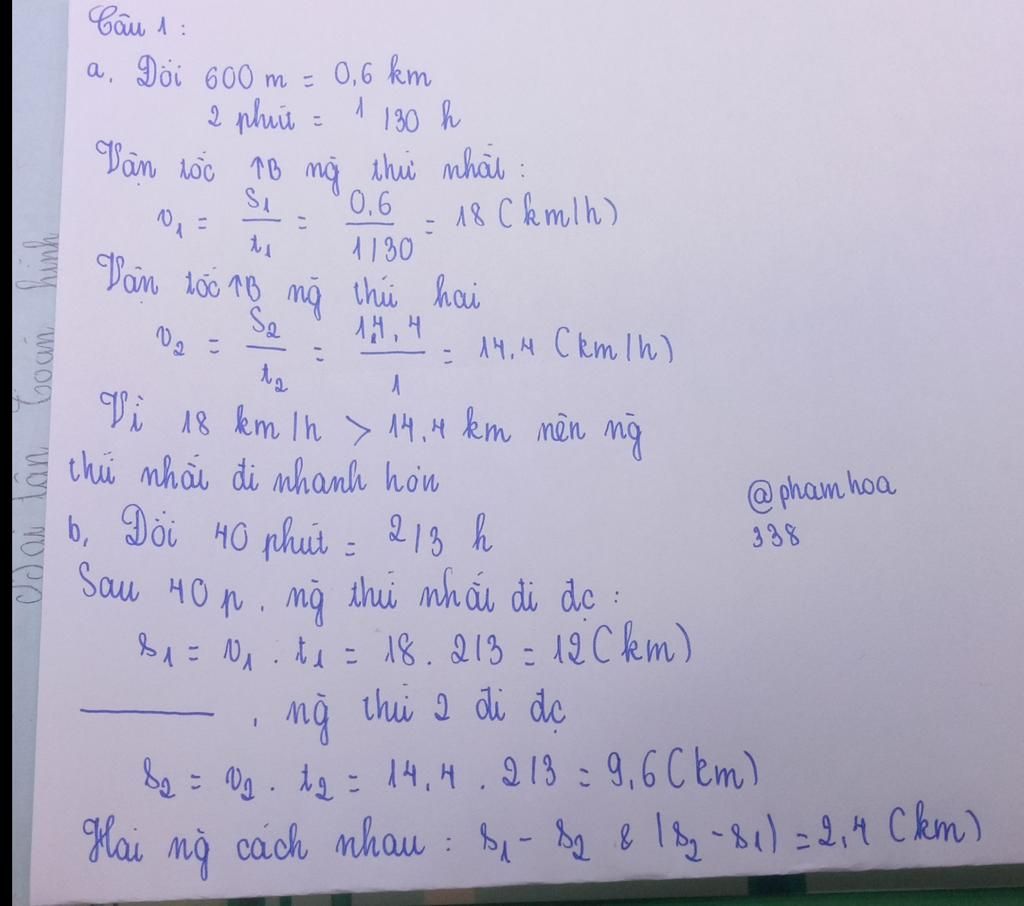 Câu 1 :
a. Đổi 600 m = 0,6 km
2 phút = 1/30 h
Vận tốc ↑B ng̀ thứ nhất :
v₁ = s₁/t₁ = 0,6/1/30 = 18 (km/h)
Vận tốc ↑B ng̀ thứ hai
v₂ = s₂/t₂ = 14,4/1 = 14,4 (km/h)
Vì 18 km/h > 14,4 km nên ng̀
thứ nhất đi nhanh hơn
@phamhoa
338
b, Đổi 40 phút = 2/3 h
Sau 40 p, ng̀ thứ nhất đi đc :
s₁ = v₁ . t₁ = 18 . 2/3 = 12 (km)
——— , ng̀ thứ 2 đi đc
s₂ = v₂ . t₂ = 14,4 . 2/3 = 9,6 (km)
Hai ng̀ cách nhau : s₁ - s₂ & |s₂ - s₁| = 2,4 (km)
toán hình